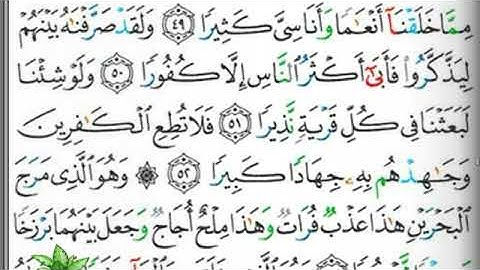 مِمَّا خَلَقْنَآ أَنْعَٰمًا وَأَنَاسِيَّ كَثِيرًا ٤٩ وَلَقَدْ صَرَّفْنَٰهُ بَيْنَهُمْ
لِيَذَّكَّرُوا۟ فَأَبَىٰٓ أَكْثَرُ ٱلنَّاسِ إِلَّا كُفُورًا ٥٠ وَلَوْ شِئْنَا
لَبَعَثْنَا فِى كُلِّ قَرْيَةٍ نَّذِيرًا ٥١ فَلَا تُطِعِ ٱلْكَٰفِرِينَ
وَجَٰهِدْهُم بِهِۦ جِهَادًا كَبِيرًا ٥٢ ۞ وَهُوَ ٱلَّذِى مَرَجَ
ٱلْبَحْرَيْنِ هَٰذَا عَذْبٌ فُرَاتٌ وَهَٰذَا مِلْحٌ أُجَاجٌ وَجَعَلَ بَيْنَهُمَا بَرْزَخًا